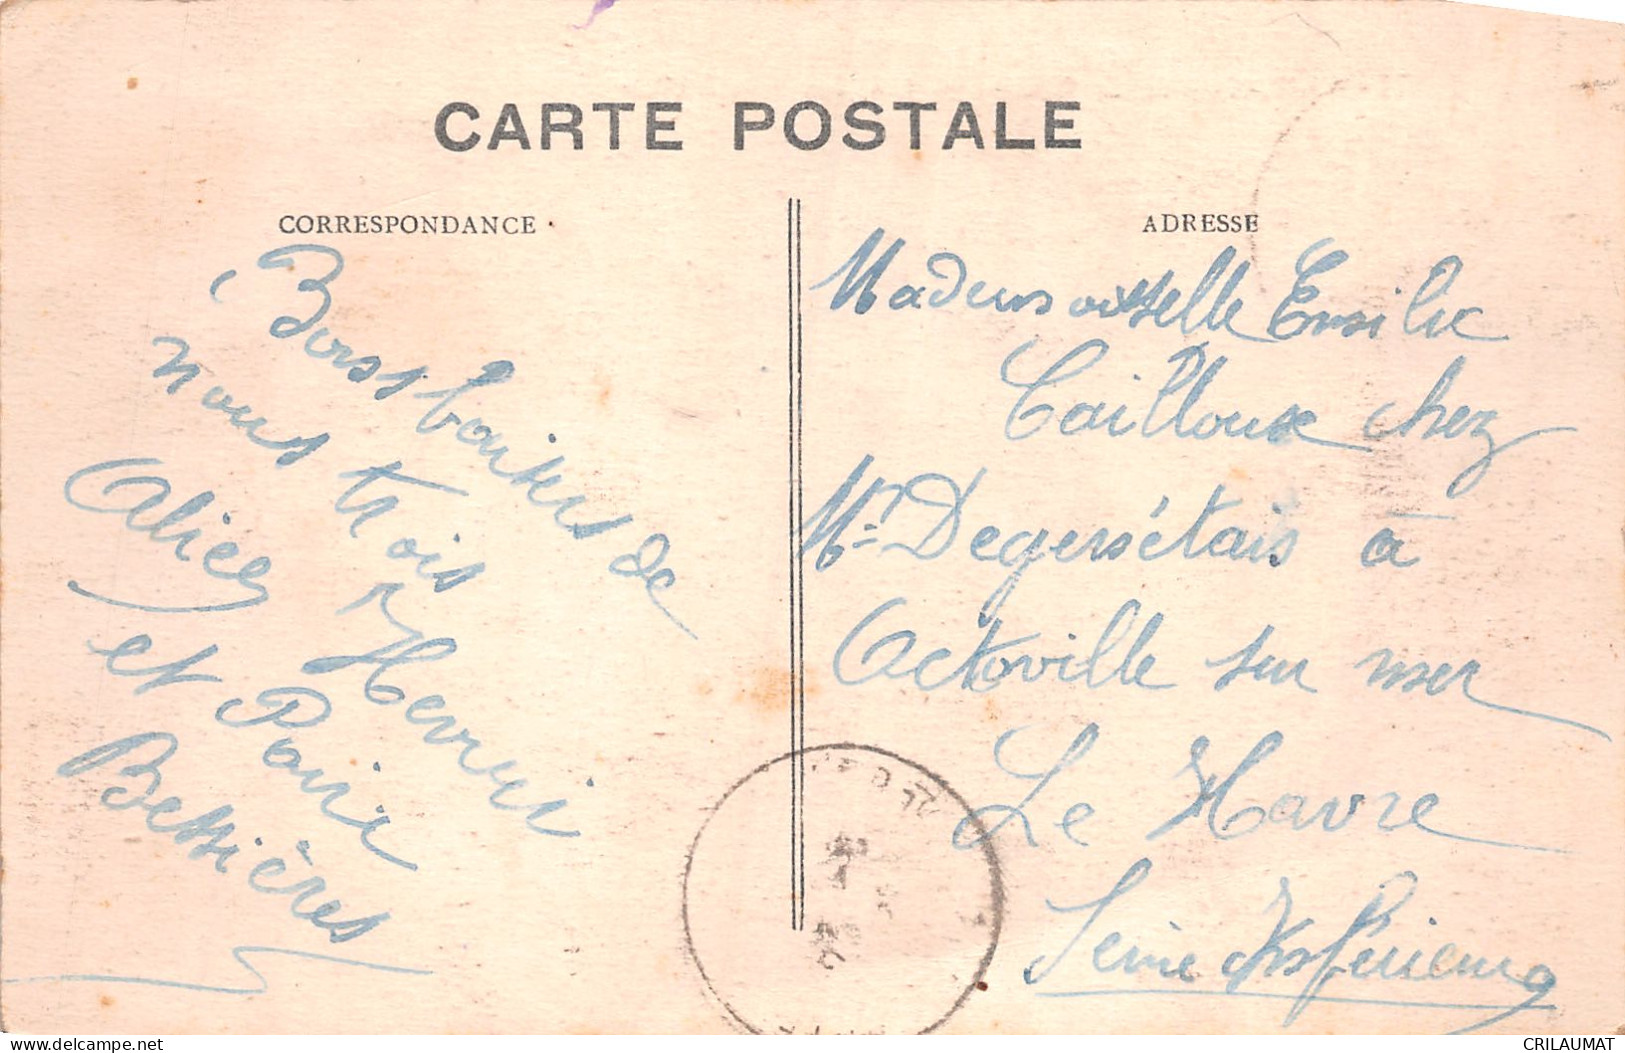 CARTE POSTALE
CORRESPONDANCE
Bons baisers de
nous trois Henri
Alice
et Paire
Bessières
ADRESSE
Mademoiselle Emilie
Cailloux chez
Mr Degersétais à
Octoville sur mer
Le Havre
Seine Inférieure
delcampe.net
CRILAUMAT